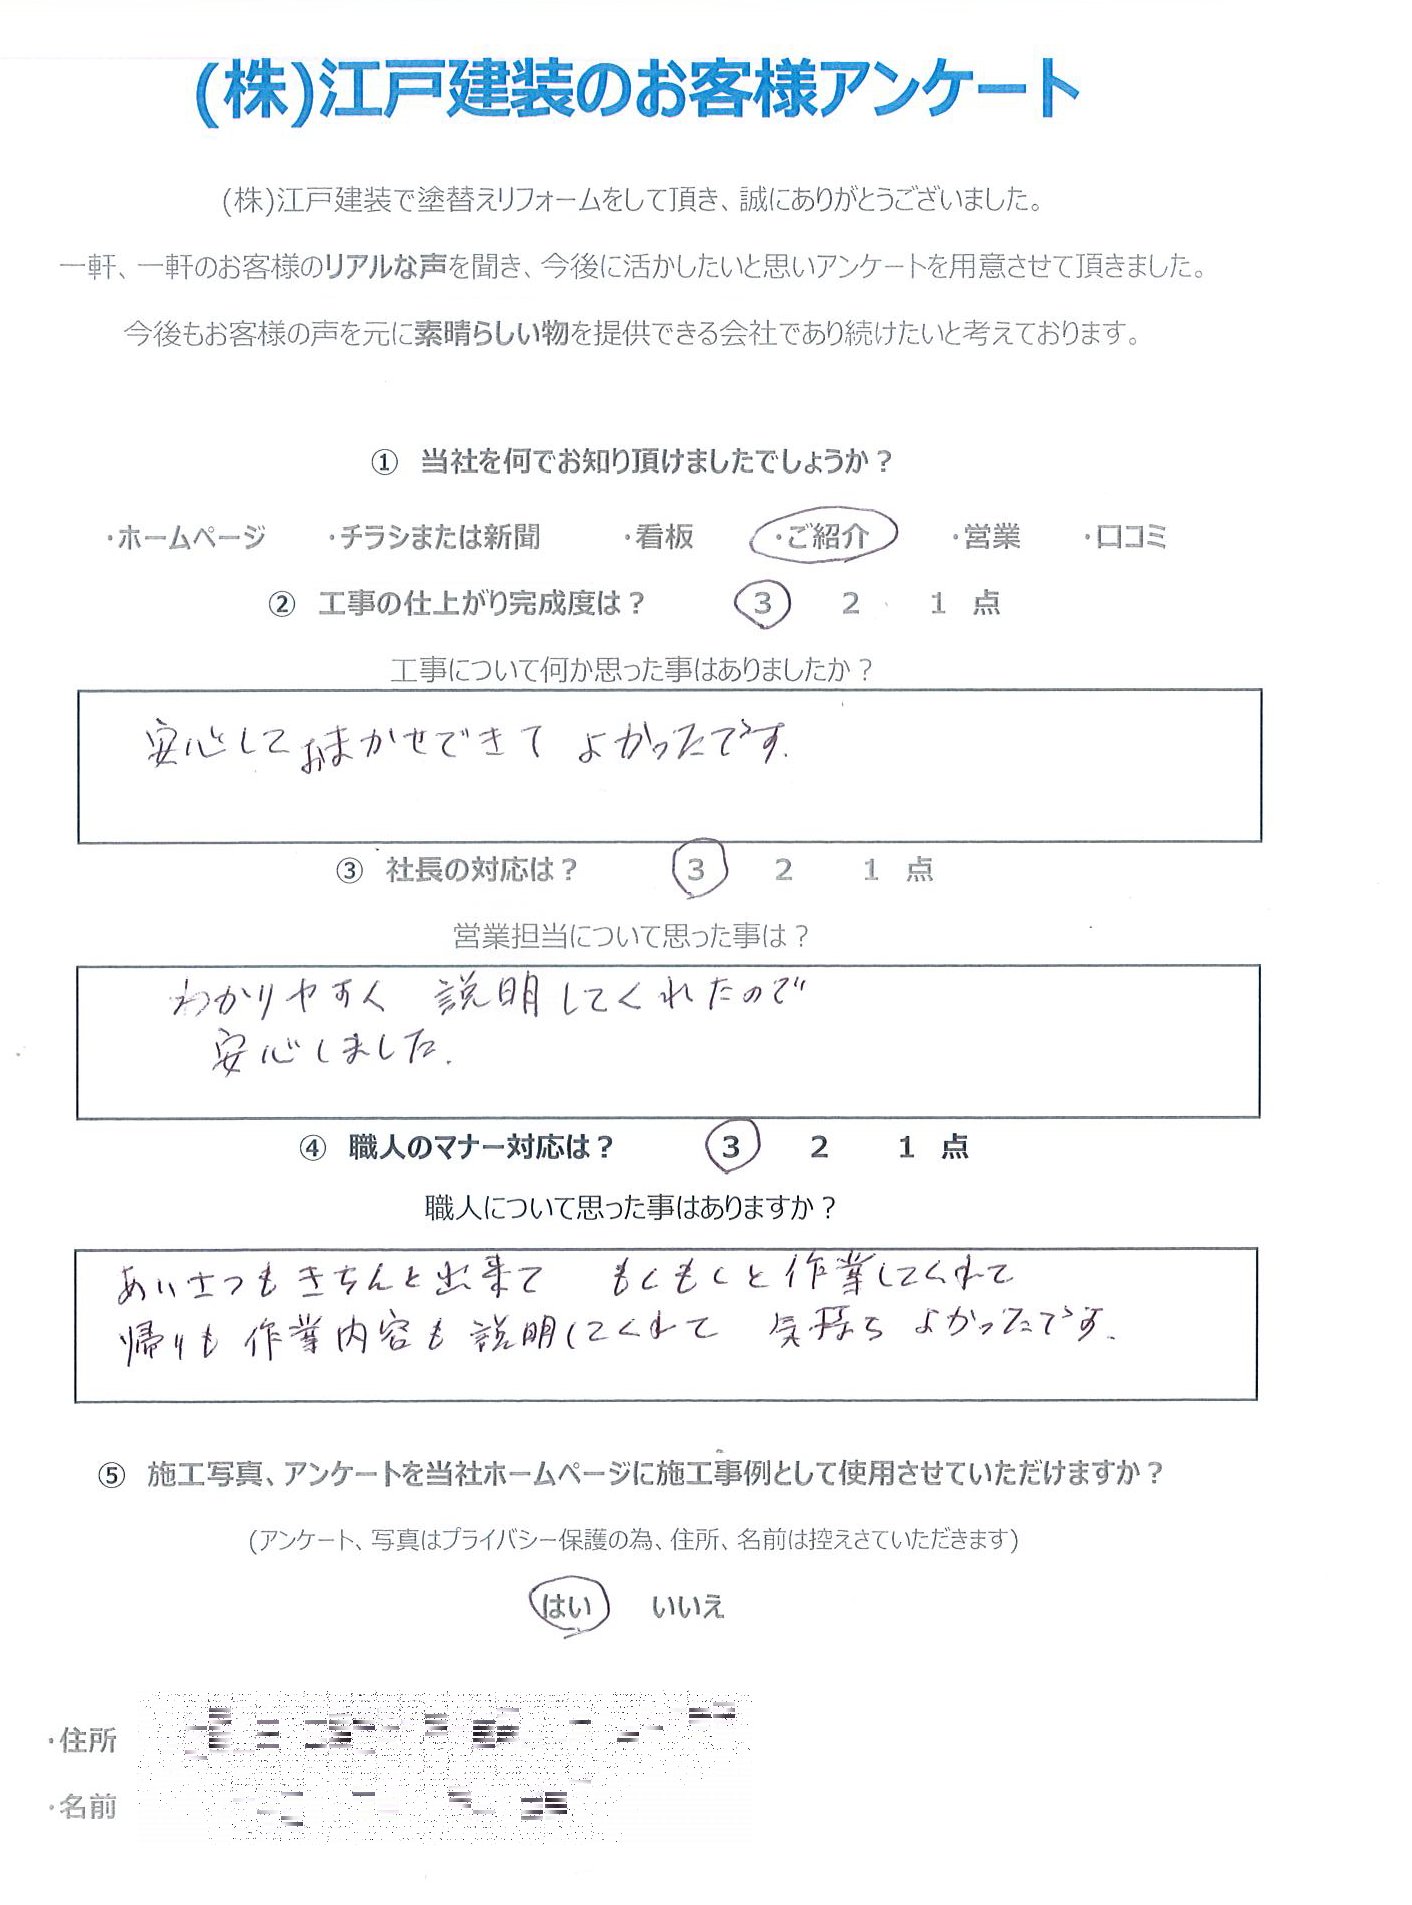 (株)江戸建装のお客様アンケート
(株)江戸建装で塗替えリフォームをして頂き、誠にありがとうございました。
一軒、一軒のお客様のリアルな声を聞き、今後に活かしたいと思いアンケートを用意させて頂きました。
今後もお客様の声を元に素晴らしい物を提供できる会社であり続けたいと考えております。
① 当社を何でお知り頂けましたでしょうか?
・ホームページ ・チラシまたは新聞 ・看板 ・ご紹介 ・営業 ・口コミ
② 工事の仕上がり完成度は? 3 2 1 点
工事について何か思った事はありましたか?
安心しておまかせできて よかったです.
③ 社長の対応は? 3 2 1 点
営業担当について思った事は?
わかりやすく 説明してくれたので
安心しました.
④ 職人のマナー対応は? 3 2 1 点
職人について思った事はありますか?
あいさつもきちんと出来て もくもくと作業してくれて
帰りも作業内容も説明してくれて 気持ちよかったです.
⑤ 施工写真、アンケートを当社ホームページに施工事例として使用させていただけますか?
(アンケート、写真はプライバシー保護の為、住所、名前は控えさていただきます)
はい いいえ
・住所
・名前